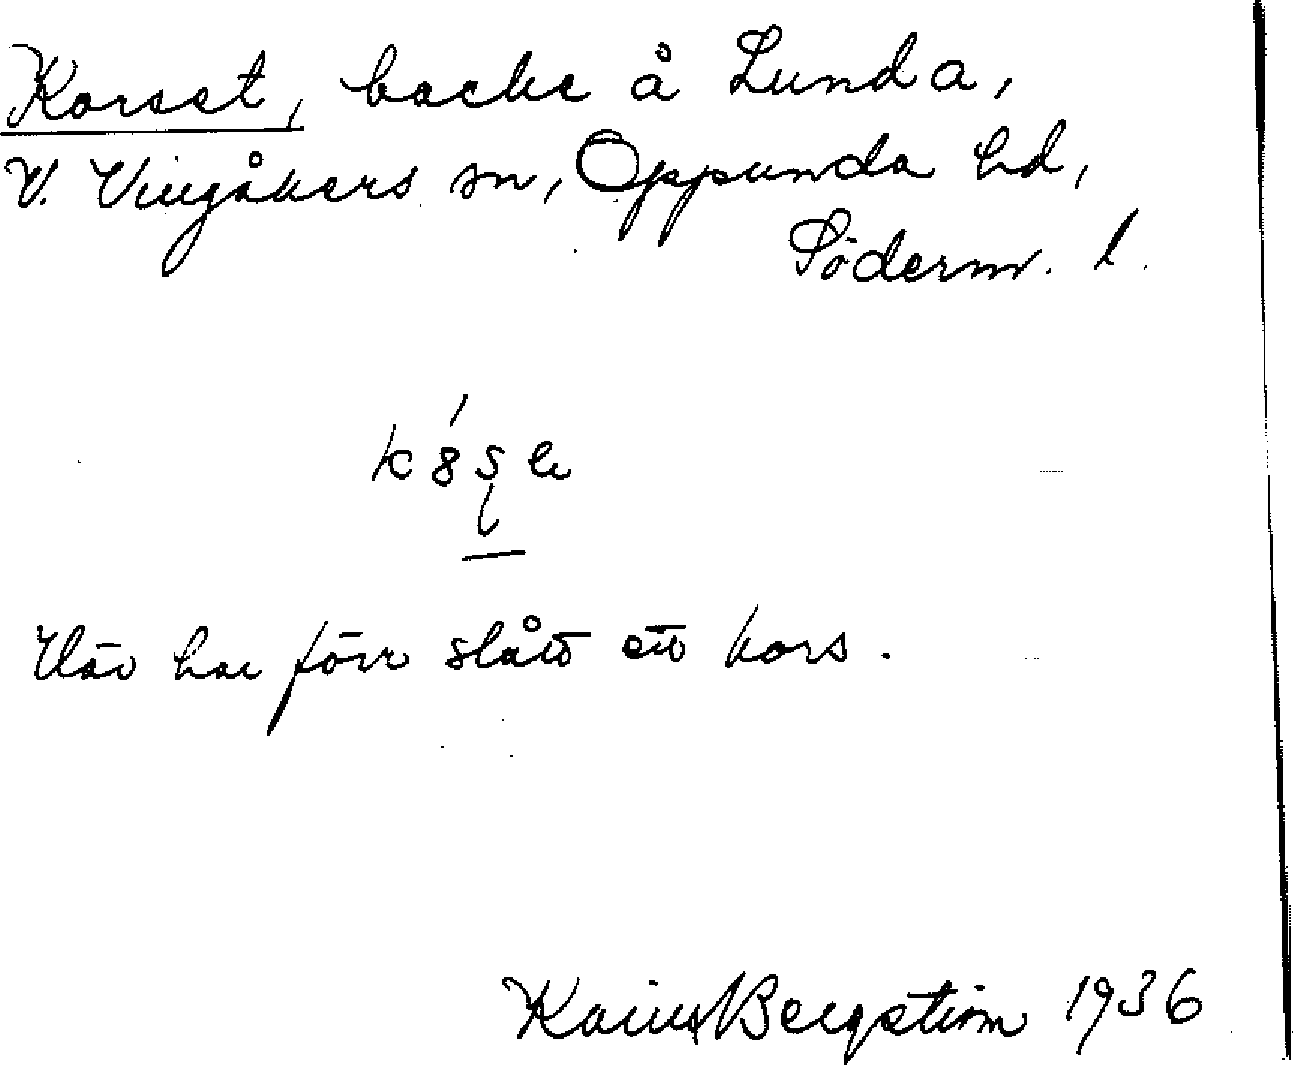 Korset, backe å Lunda,
V. Vingåkers sn, Oppunda hd,
Söderm. l.
Där har förr stått ett kors.
Bergström 1936